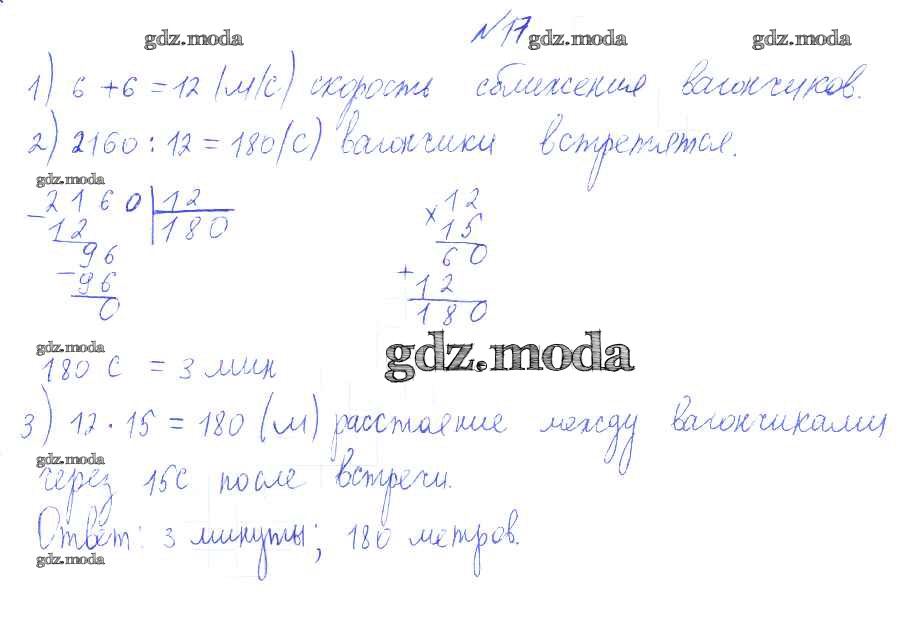 №17
gdz.moda gdz.moda gdz.moda
1) 6 + 6 = 12 (м/с) скорость сближения вагончиков.
2) 2160 : 12 = 180 (с) вагончики встретятся.
gdz.moda
2160 | 12
- 12 | 180
96
- 96
0
× 12
15
60
+ 12
180
gdz.moda
gdz.moda
180 с = 3 мин
3) 12 · 15 = 180 (м) расстояние между вагончиками
gdz.moda
через 15с после встречи.
Ответ: 3 минуты; 180 метров.
gdz.moda